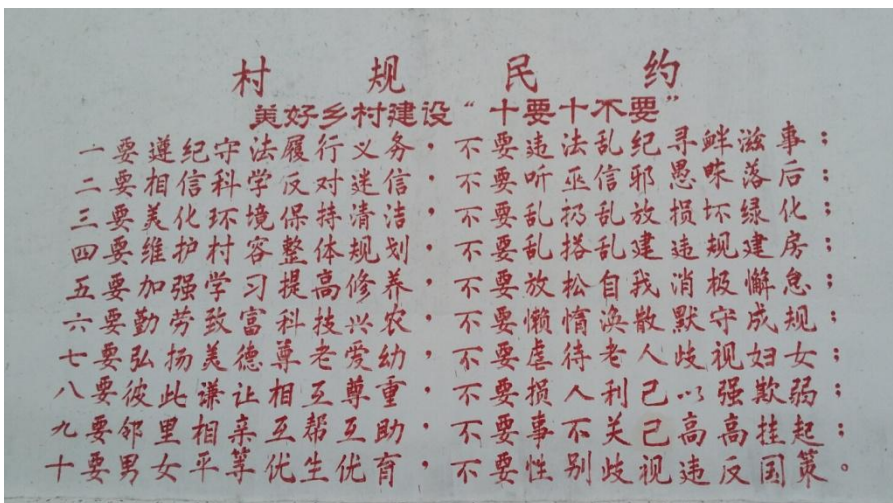 村规民约
美好乡村建设“十要十不要”
一要遵纪守法履行义务，不要违法乱纪寻衅滋事；
二要相信科学反对迷信，不要听巫信邪愚昧落后；
三要美化环境保持清洁，不要乱扔乱放损坏绿化；
四要维护村容整体规划，不要乱搭乱建违规建房；
五要加强学习提高修养，不要放松自我消极懈怠；
六要勤劳致富科技兴农，不要懒惰涣散默守成规；
七要弘扬美德尊老爱幼，不要虐待老人歧视妇女；
八要彼此谦让相互尊重，不要损人利己以强欺弱；
九要邻里相亲互帮互助，不要事不关己高高挂起；
十要男女平等优生优育，不要性别歧视违反国策。